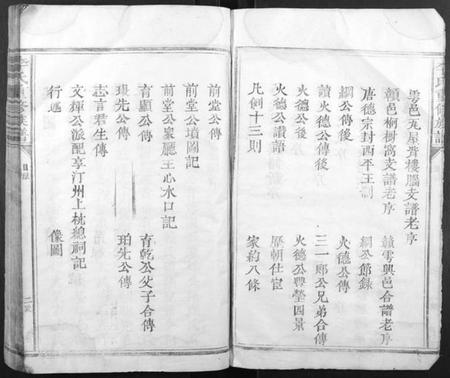 雩邑
支譜老序
贛邑桐樹窩支譜老序
贛雩興邑合譜老序
唐德宗封西平王制
綱公節錄
綱公傳後
火德公傳
讀火德公傳後
三一郎公兄弟合傳
火德公後
火德公豐塋四景
火德公讚語
歷朝仕宦
凡例十三則
家約八條
前堂公傳
前堂公墳圖記
前堂公眾廳主心水口記
育顯公傳
育乾公父子合傳
珙先公傳
珀先公傳
志言君生傳
文輝公派配享汀州上杭總祠記
行述
像圖
目錄